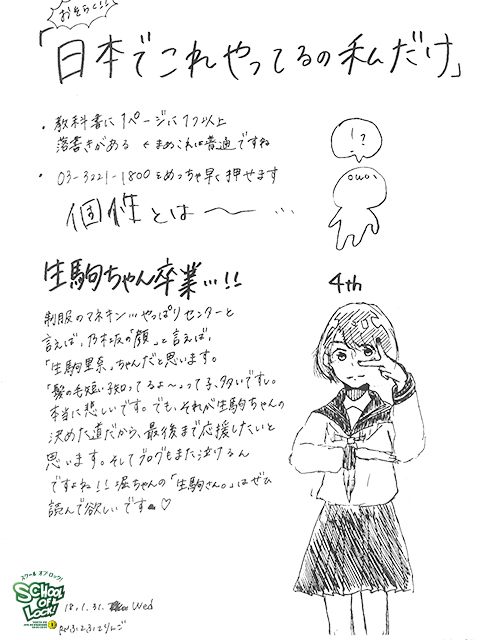 おそらく!!
「日本でこれやってるの私だけ」
・教科書に1ページに1つ以上
落書きがある ← まぁこれは普通ですね
・03-3221-1800をめっちゃ早く押せます
個性とは〜 …
!?
生駒ちゃん卒業…!!
4th
制服のマネキン…やっぱりセンターと
言えば、乃木坂の「顔」と言えば、
「生駒里奈」ちゃんだと思います。
「髪の毛短い子知ってるよ〜」って子、多いですし。
本当に悲しいです。でも、それが生駒ちゃんの
決めた道だから、最後まで応援したいと
思います。そしてブログもまた泣けるん
ですよね!!堀ちゃんの「生駒さん。」はぜひ
読んで欲しいです♡
スクール オブ ロック!
SCHOOL OF LOCK!
18.1.31. Wed